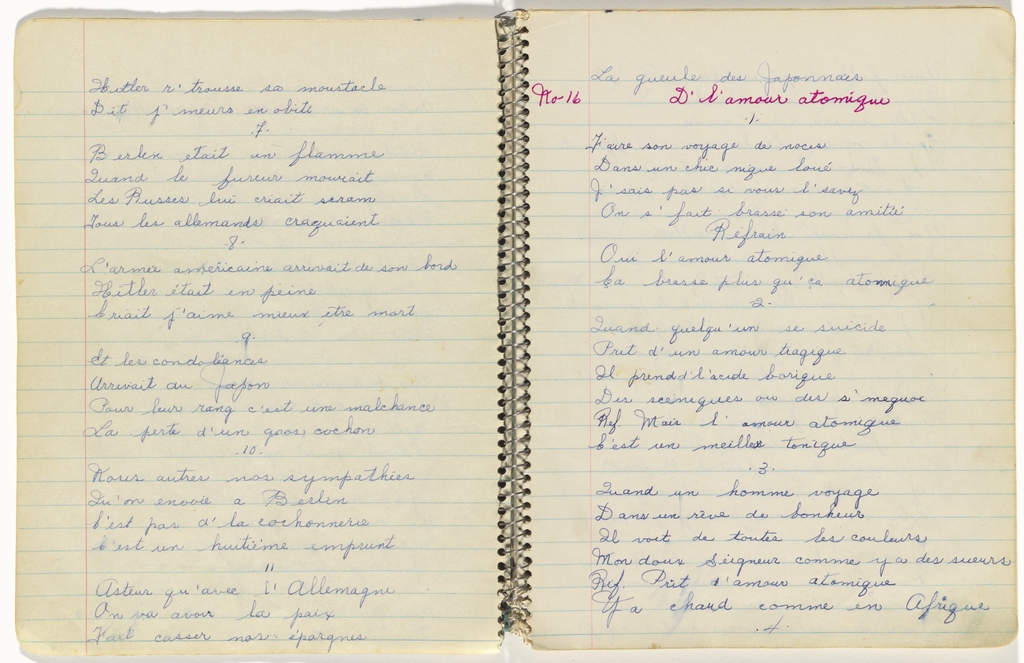 Hitler r'trousse sa moustache
Dit j'meurs en obits
.7.
Berlin était un flamme
Quand le fureur mourait
Les Russes lui criait scram
Tous les allemands craquaient
.8.
L'armée américaine arrivait de son bord
Hitler était en peine
Criait j'aime mieux être mort
9.
Et les condoléances
Arrivait du Japon
Pour leur rang c'est une malchance
La perte d'un gros cochon
.10.
Nous autres nos sympathies
Qu'on envoie a Berlin
C'est pas d'la cochonnerie
C'est un huitième emprunt
11
Asteur qu'avec l'Allemagne
On va avoir la paix
Faut casser nos épargnes
La gueule des Japonnais
No-16 D'l'amour atomique
.1.
Faire son voyage de noces
Dans un chic nique loué
J'sais pas si vous l'savez
On s'fait brassé son amitié
Refrain
Oui l'amour atomique
Ça brasse plus qu'ça atomnique
2-
Quand quelqu'un se suicide
Prit d'un amour tragique
Il prend d'l'acide borique
Des scéniques ou des s'mequoi
Ref. Mais l'amour atomique
C'est un meillex tonique
.3.
Quand un homme voyage
Dans un rêve de bonheur
Il voit de toutes les couleurs
Mon doux Seigneur comme y a des sueurs
Ref. Prit d'amour atomique
Y'a chaud comme en Afrique
.4.